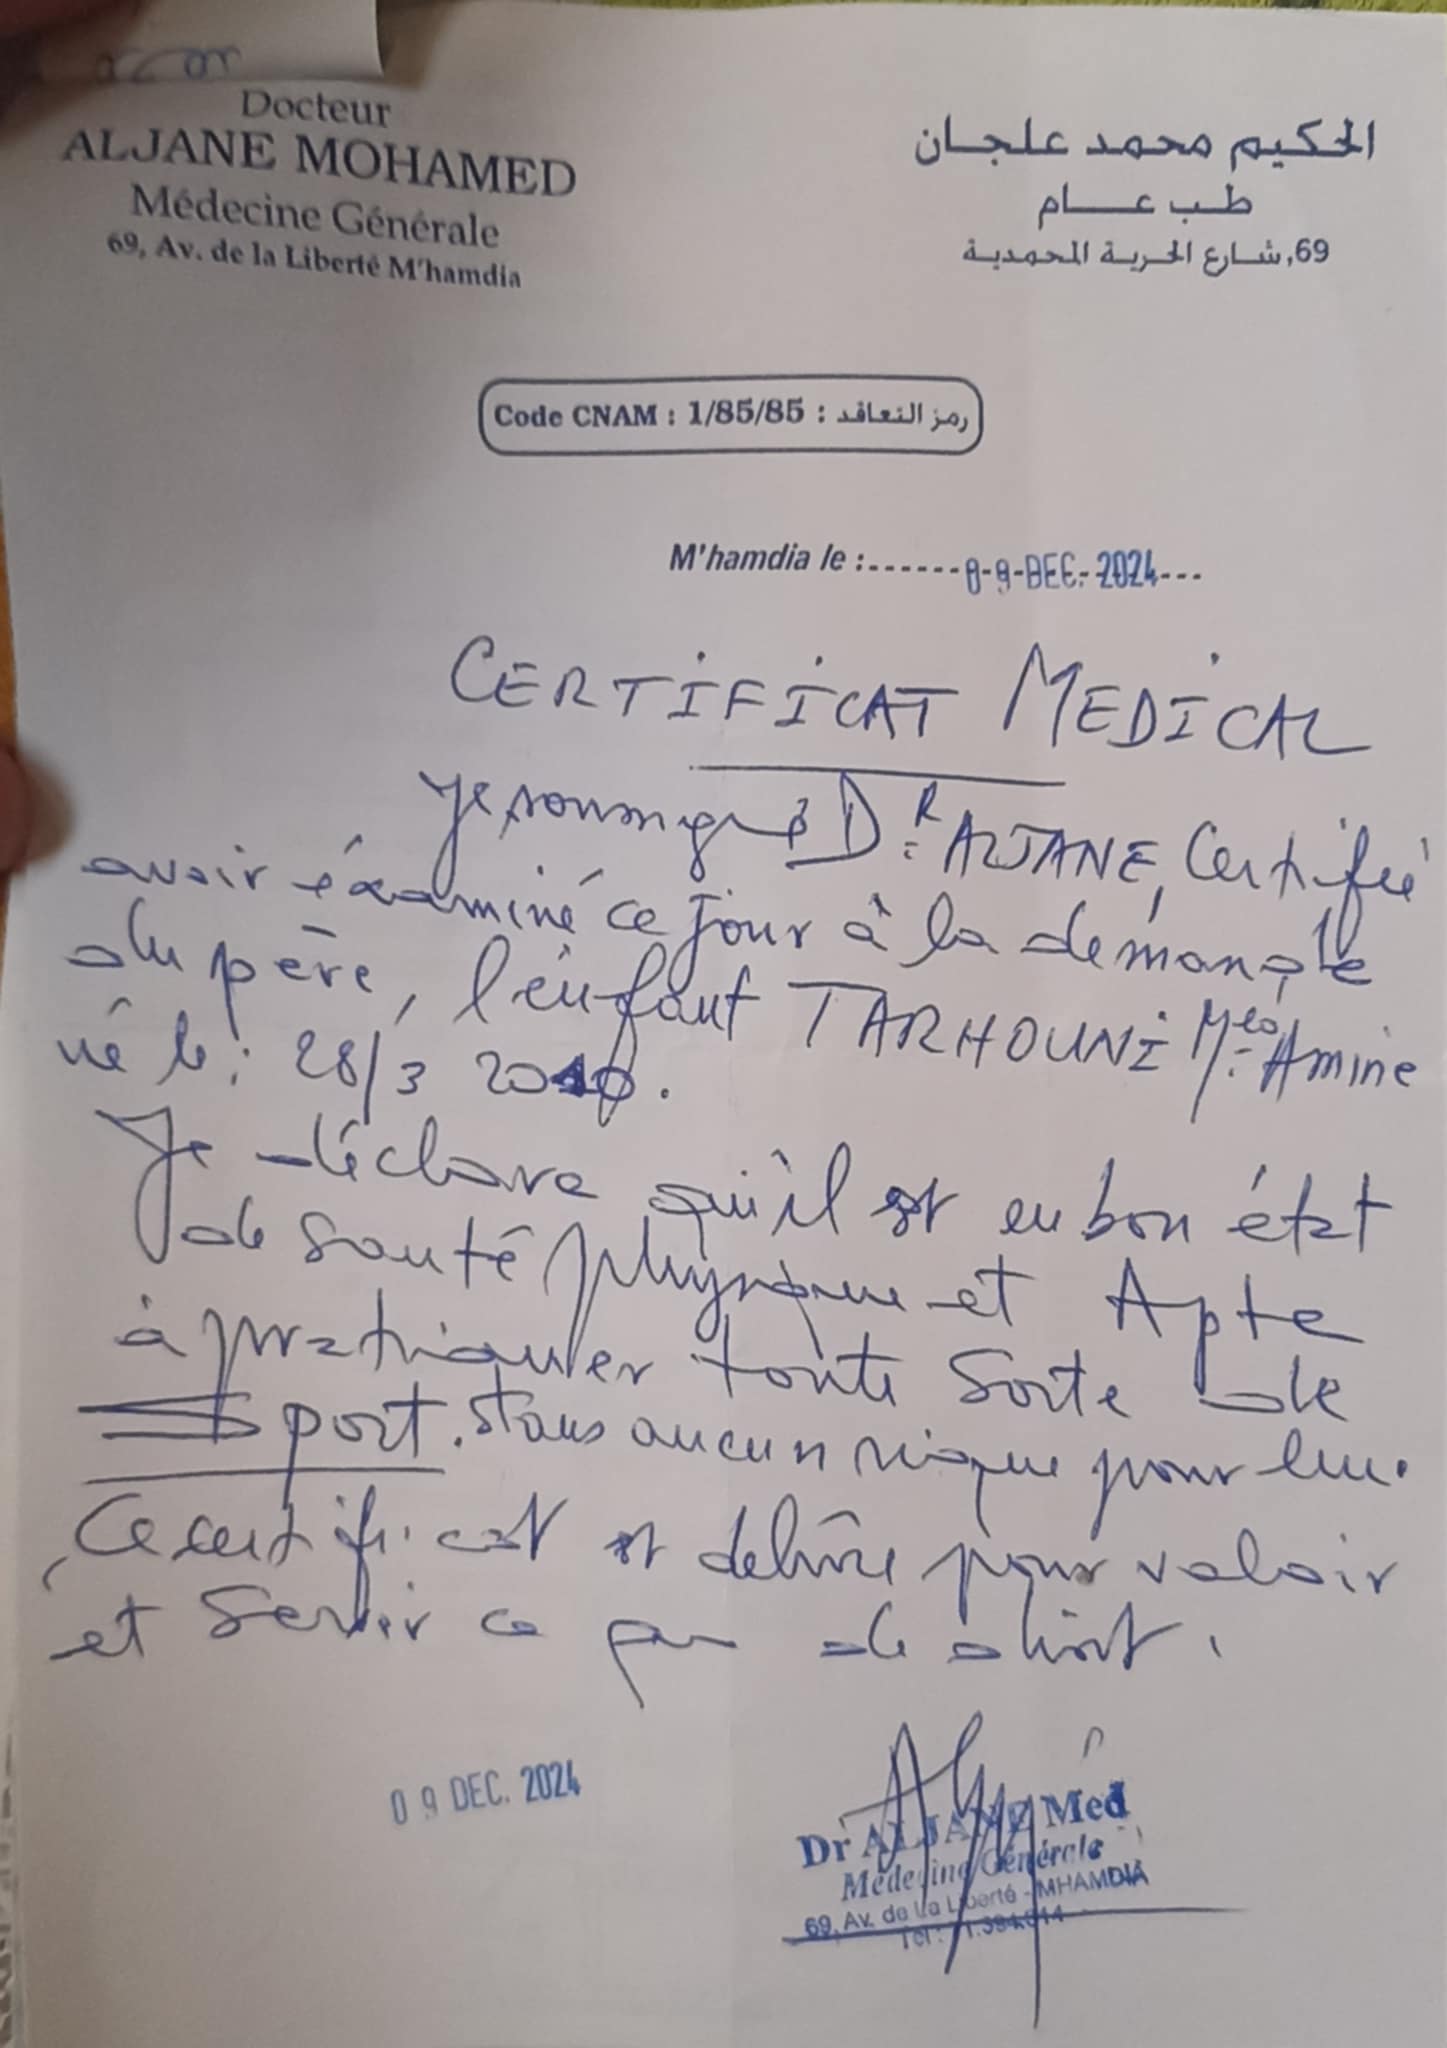 Docteur
ALJANE MOHAMED
Médecine Générale
69, Av. de la Liberté M'hamdia
الحكيم محمد علجان
طب عام
69, شارع الحرية المحمدية
Code CNAM : 1/85/85 : رمز التعاقد
M'hamdia le : 09 DEC. 2024
CERTIFICAT MEDICAL
Je soussigné DR ALJANE, Certifie
avoir éxaminé ce jour à la demande
du père, l'enfant TARHOUNI Med Amine
né le : 28/3 2010.
Je déclare qu'il est en bon état
de santé physique et Apte
à pratiquer toute sorte de
Sport. sans aucun risque pour lui.
Ce certificat est délivré pour valoir
et servir ce que de droit.
09 DEC. 2024
Dr ALJANE Med
Médecine Générale
69, Av. de La Liberté - MHAMDIA
Tél :